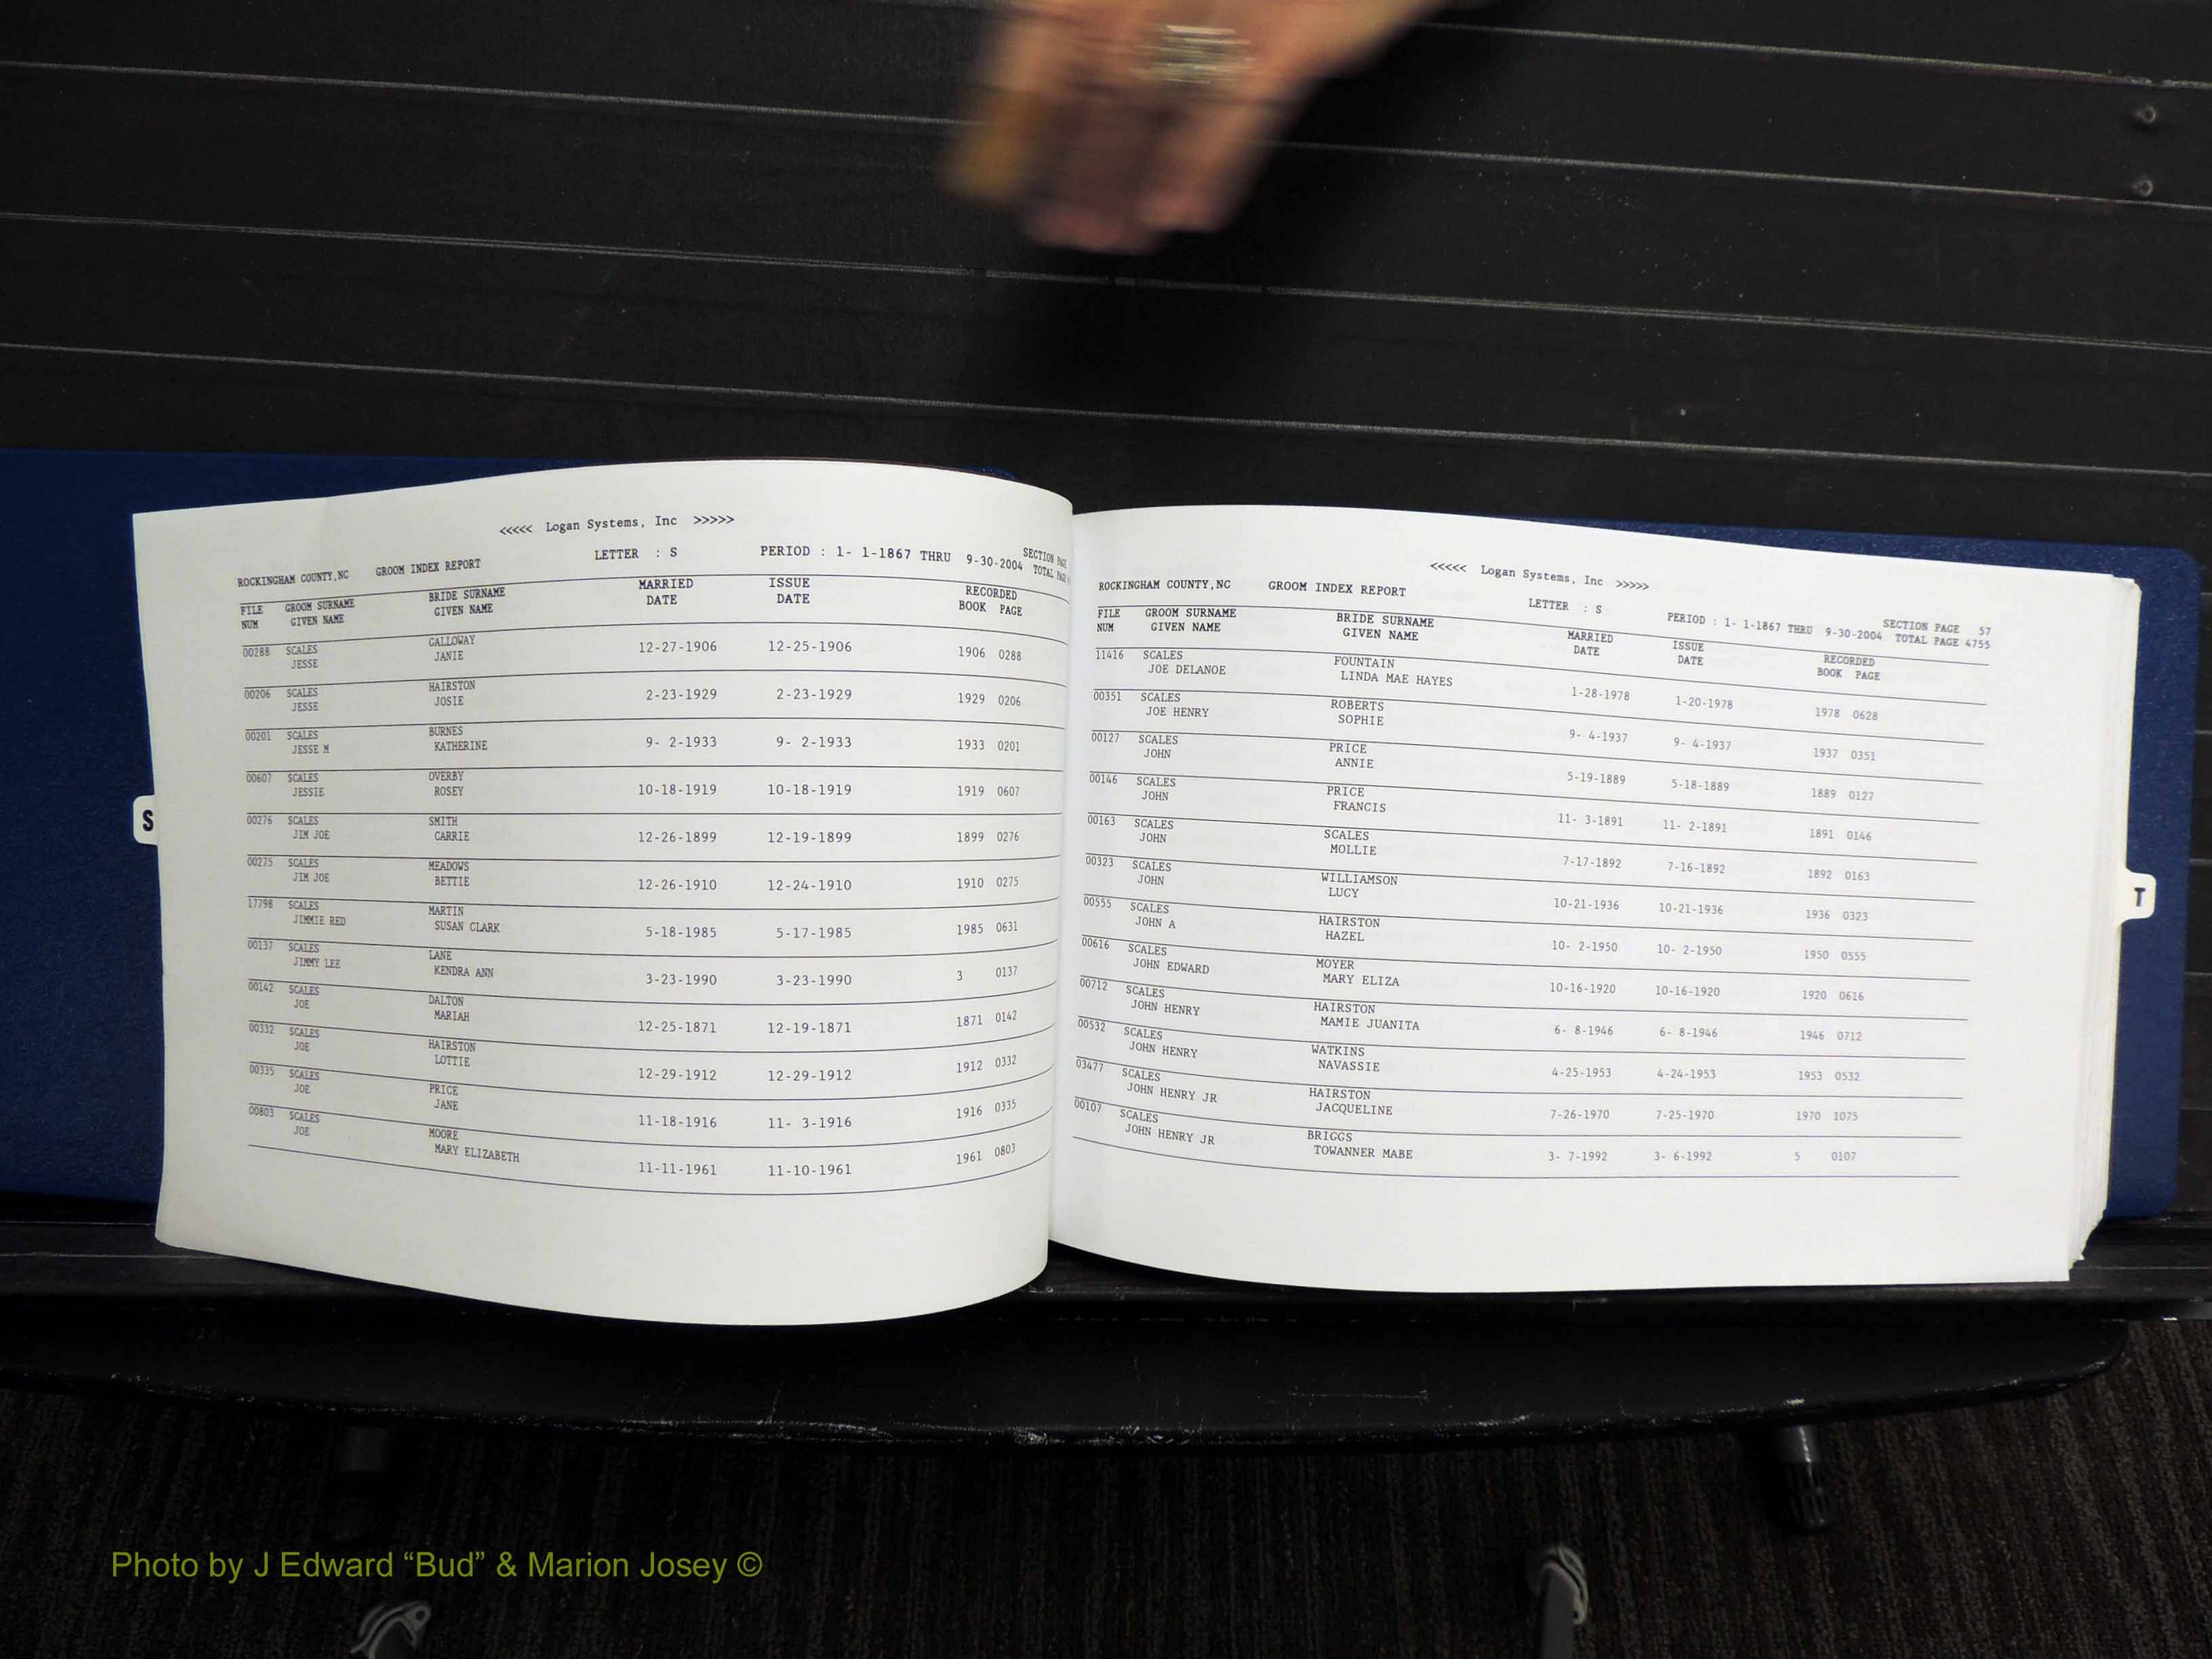 <<<<< Logan Systems, Inc >>>>>
ROCKINGHAM COUNTY,NC GROOM INDEX REPORT LETTER : S PERIOD : 1- 1-1867 THRU 9-30-2004 SECTION PAGE
TOTAL PAGE
FILE GROOM SURNAME BRIDE SURNAME MARRIED ISSUE RECORDED
NUM GIVEN NAME GIVEN NAME DATE DATE BOOK PAGE
00288 SCALES GALLOWAY
JESSE JANIE 12-27-1906 12-25-1906 1906 0288
00206 SCALES HAIRSTON
JESSE JOSIE 2-23-1929 2-23-1929 1929 0206
00201 SCALES BURNES
JESSE M KATHERINE 9- 2-1933 9- 2-1933 1933 0201
00607 SCALES OVERBY
JESSIE ROSEY 10-18-1919 10-18-1919 1919 0607
00276 SCALES SMITH
JIM JOE CARRIE 12-26-1899 12-19-1899 1899 0276
00275 SCALES MEADOWS
JIM JOE BETTIE 12-26-1910 12-24-1910 1910 0275
17798 SCALES MARTIN
JIMMIE RED SUSAN CLARK 5-18-1985 5-17-1985 1985 0631
00137 SCALES LANE
JIMMY LEE KENDRA ANN 3-23-1990 3-23-1990 3 0137
00142 SCALES DALTON
JOE MARIAH 12-25-1871 12-19-1871 1871 0142
00332 SCALES HAIRSTON
JOE LOTTIE 12-29-1912 12-29-1912 1912 0332
00335 SCALES PRICE
JOE JANE 11-18-1916 11- 3-1916 1916 0335
00803 SCALES MOORE
JOE MARY ELIZABETH 11-11-1961 11-10-1961 1961 0803
S
<<<<< Logan Systems, Inc >>>>>
ROCKINGHAM COUNTY,NC GROOM INDEX REPORT LETTER : S PERIOD : 1- 1-1867 THRU 9-30-2004 SECTION PAGE 57
TOTAL PAGE 4755
FILE GROOM SURNAME BRIDE SURNAME MARRIED ISSUE RECORDED
NUM GIVEN NAME GIVEN NAME DATE DATE BOOK PAGE
11416 SCALES FOUNTAIN
JOE DELANOE LINDA MAE HAYES 1-28-1978 1-20-1978 1978 0628
00351 SCALES ROBERTS
JOE HENRY SOPHIE 9- 4-1937 9- 4-1937 1937 0351
00127 SCALES PRICE
JOHN ANNIE 5-19-1889 5-18-1889 1889 0127
00146 SCALES PRICE
JOHN FRANCIS 11- 3-1891 11- 2-1891 1891 0146
00163 SCALES SCALES
JOHN MOLLIE 7-17-1892 7-16-1892 1892 0163
00323 SCALES WILLIAMSON
JOHN LUCY 10-21-1936 10-21-1936 1936 0323
00555 SCALES HAIRSTON
JOHN A HAZEL 10- 2-1950 10- 2-1950 1950 0555
00616 SCALES MOYER
JOHN EDWARD MARY ELIZA 10-16-1920 10-16-1920 1920 0616
00712 SCALES HAIRSTON
JOHN HENRY MAMIE JUANITA 6- 8-1946 6- 8-1946 1946 0712
00532 SCALES WATKINS
JOHN HENRY NAVASSIE 4-25-1953 4-24-1953 1953 0532
03477 SCALES HAIRSTON
JOHN HENRY JR JACQUELINE 7-26-1970 7-25-1970 1970 1075
00107 SCALES BRIGGS
JOHN HENRY JR TOWANNER MABE 3- 7-1992 3- 6-1992 5 0107
T
Photo by J Edward “Bud” & Marion Josey ©